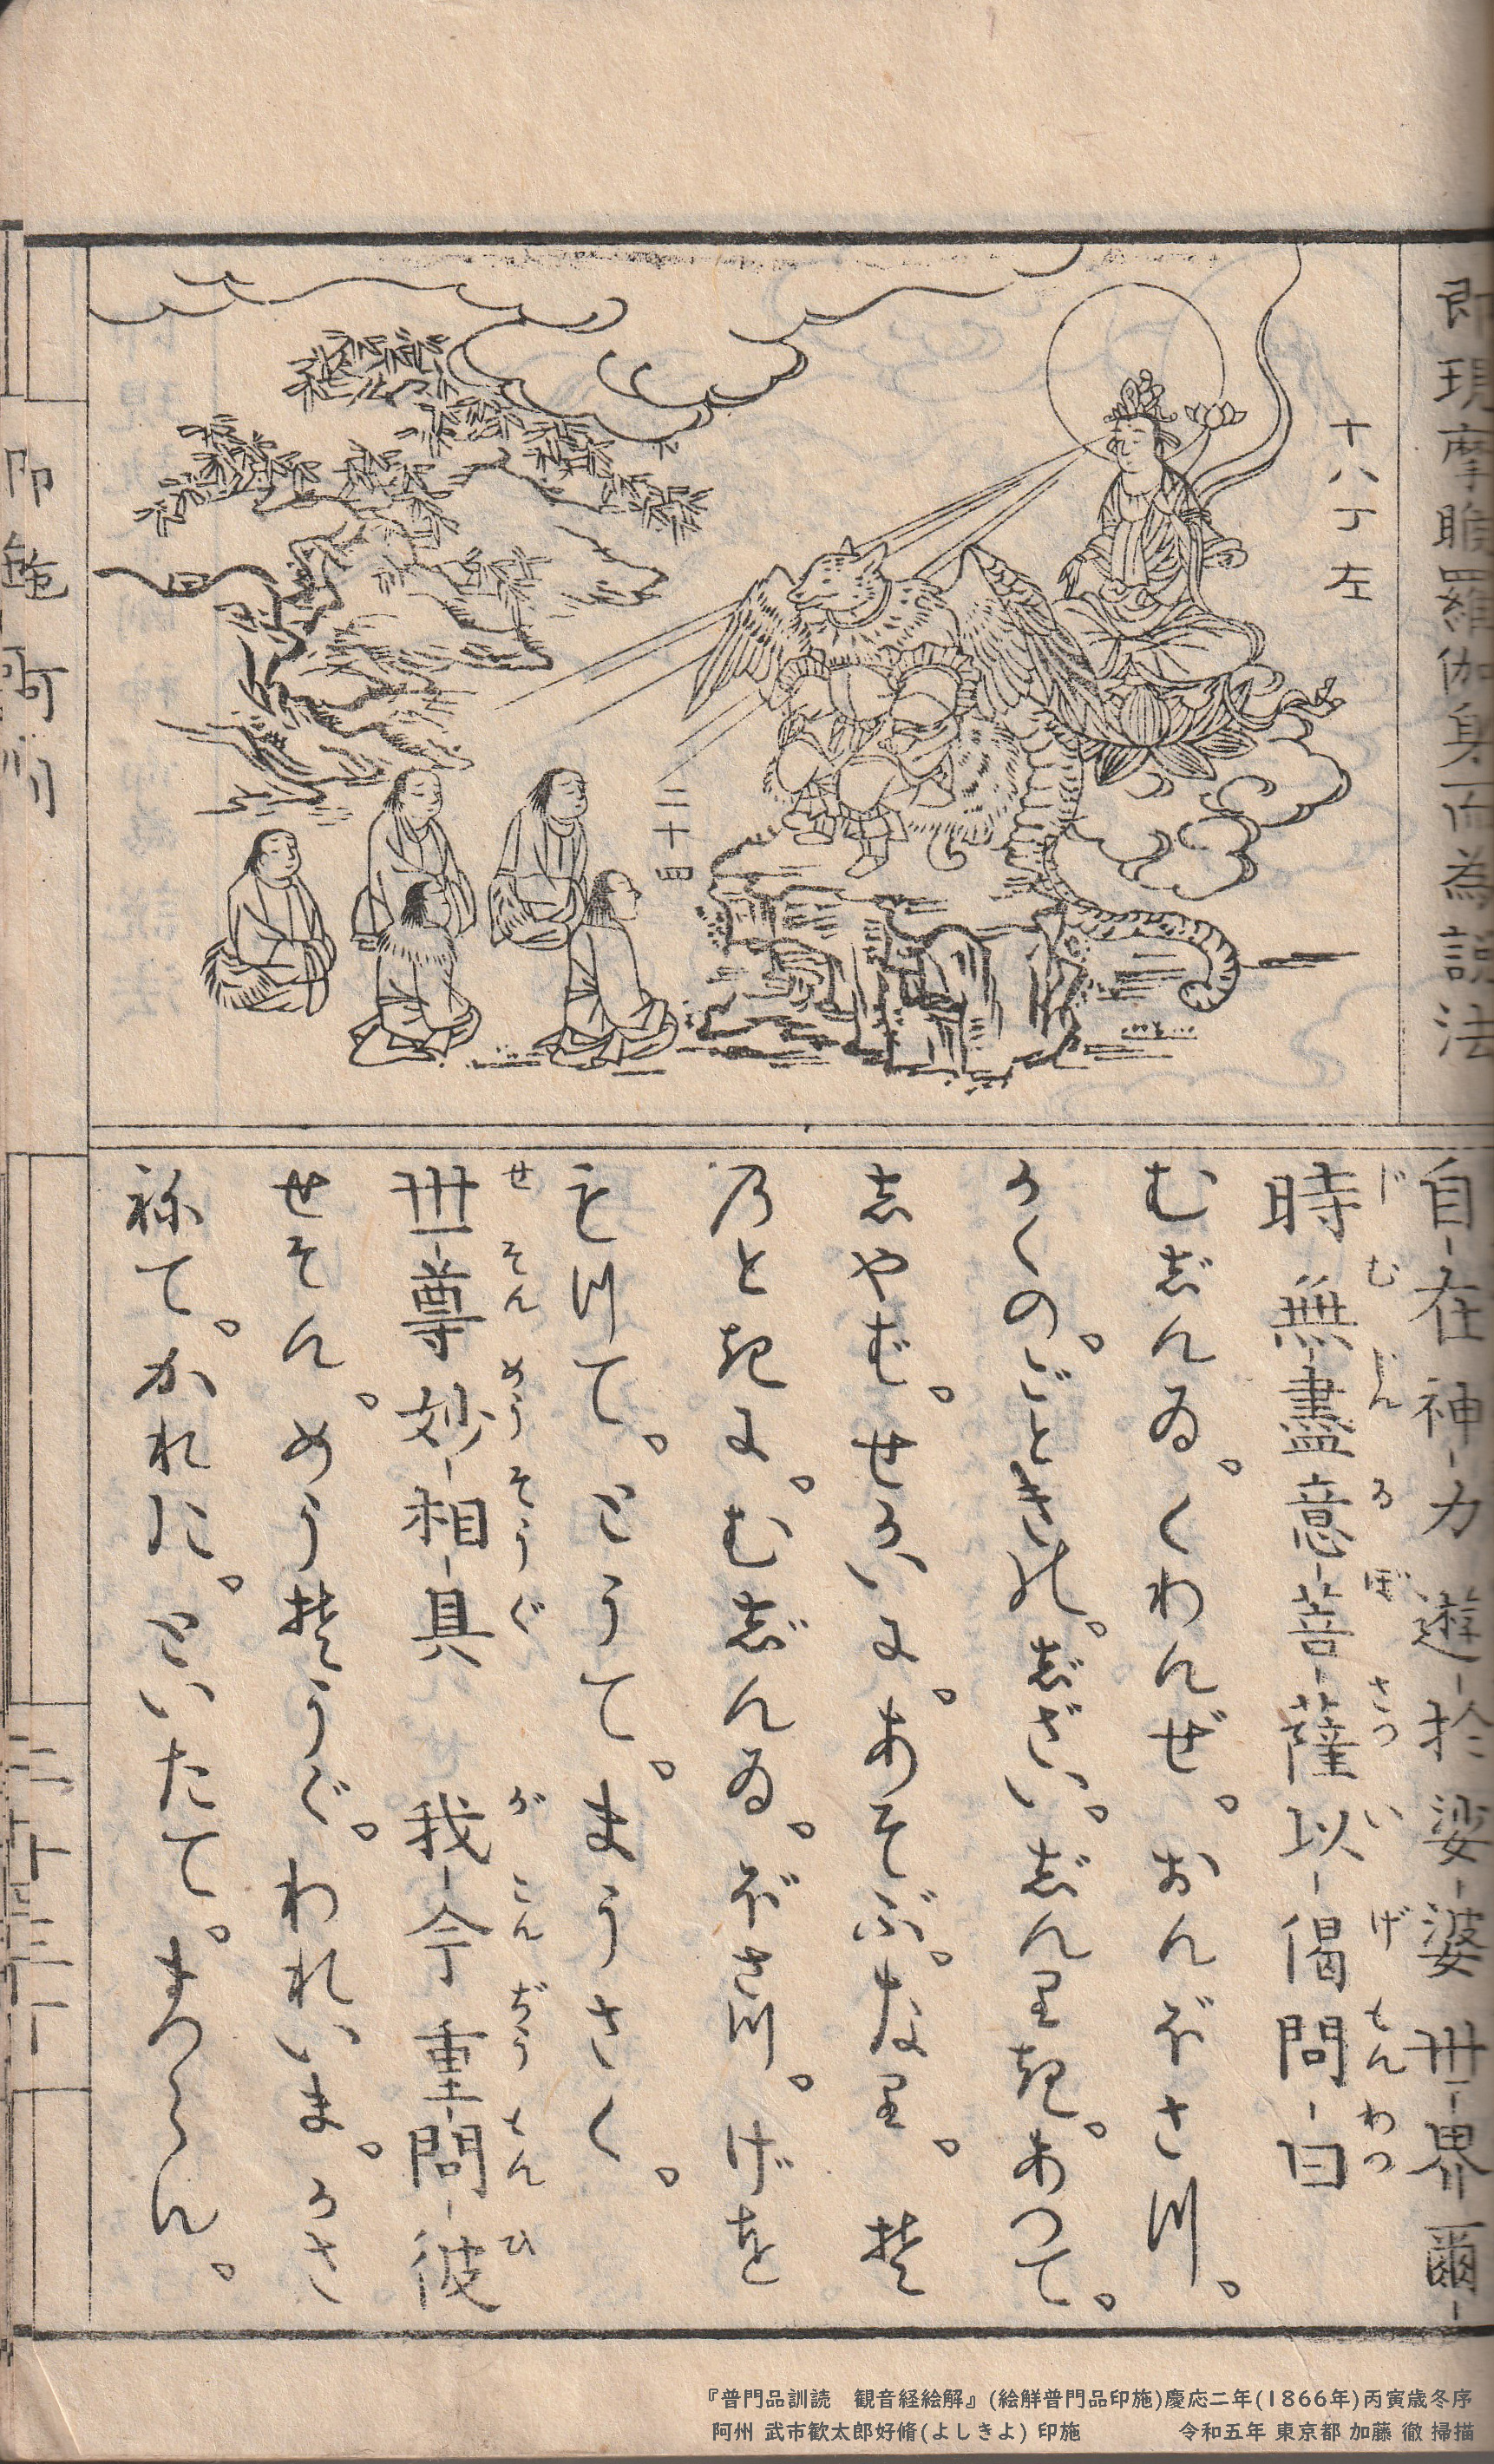 即現摩睺羅伽身而為説法
十八丁左
二十四
自在神力遊於娑婆世界爾
時無盡意菩薩以偈問曰
じ むじんゐぼさついげもんわつ
むじんゐ。くわんぜ。おんぼさつ。
かくのごときの。じざい。じんりき。あつて。
しやば。せかいに。あそぶ。なり。そ
のときに。むじんゐ。ぼさつ。げを
もつて。とうて。まうさく。
世尊妙相具 我今重問彼
せそんめうそうぐ がこんぢうもんひ
せそん。めうそうぐ。われいま。かさ
ねて。かれに。といたてまつらん。
二十三丁
『普門品訓読 観音経絵解』(絵解普門品印施)慶応二年(1866年)丙寅歳冬序
阿州 武市歓太郎好脩(よしきよ) 印施 令和五年 東京都 加藤 徹 掃描